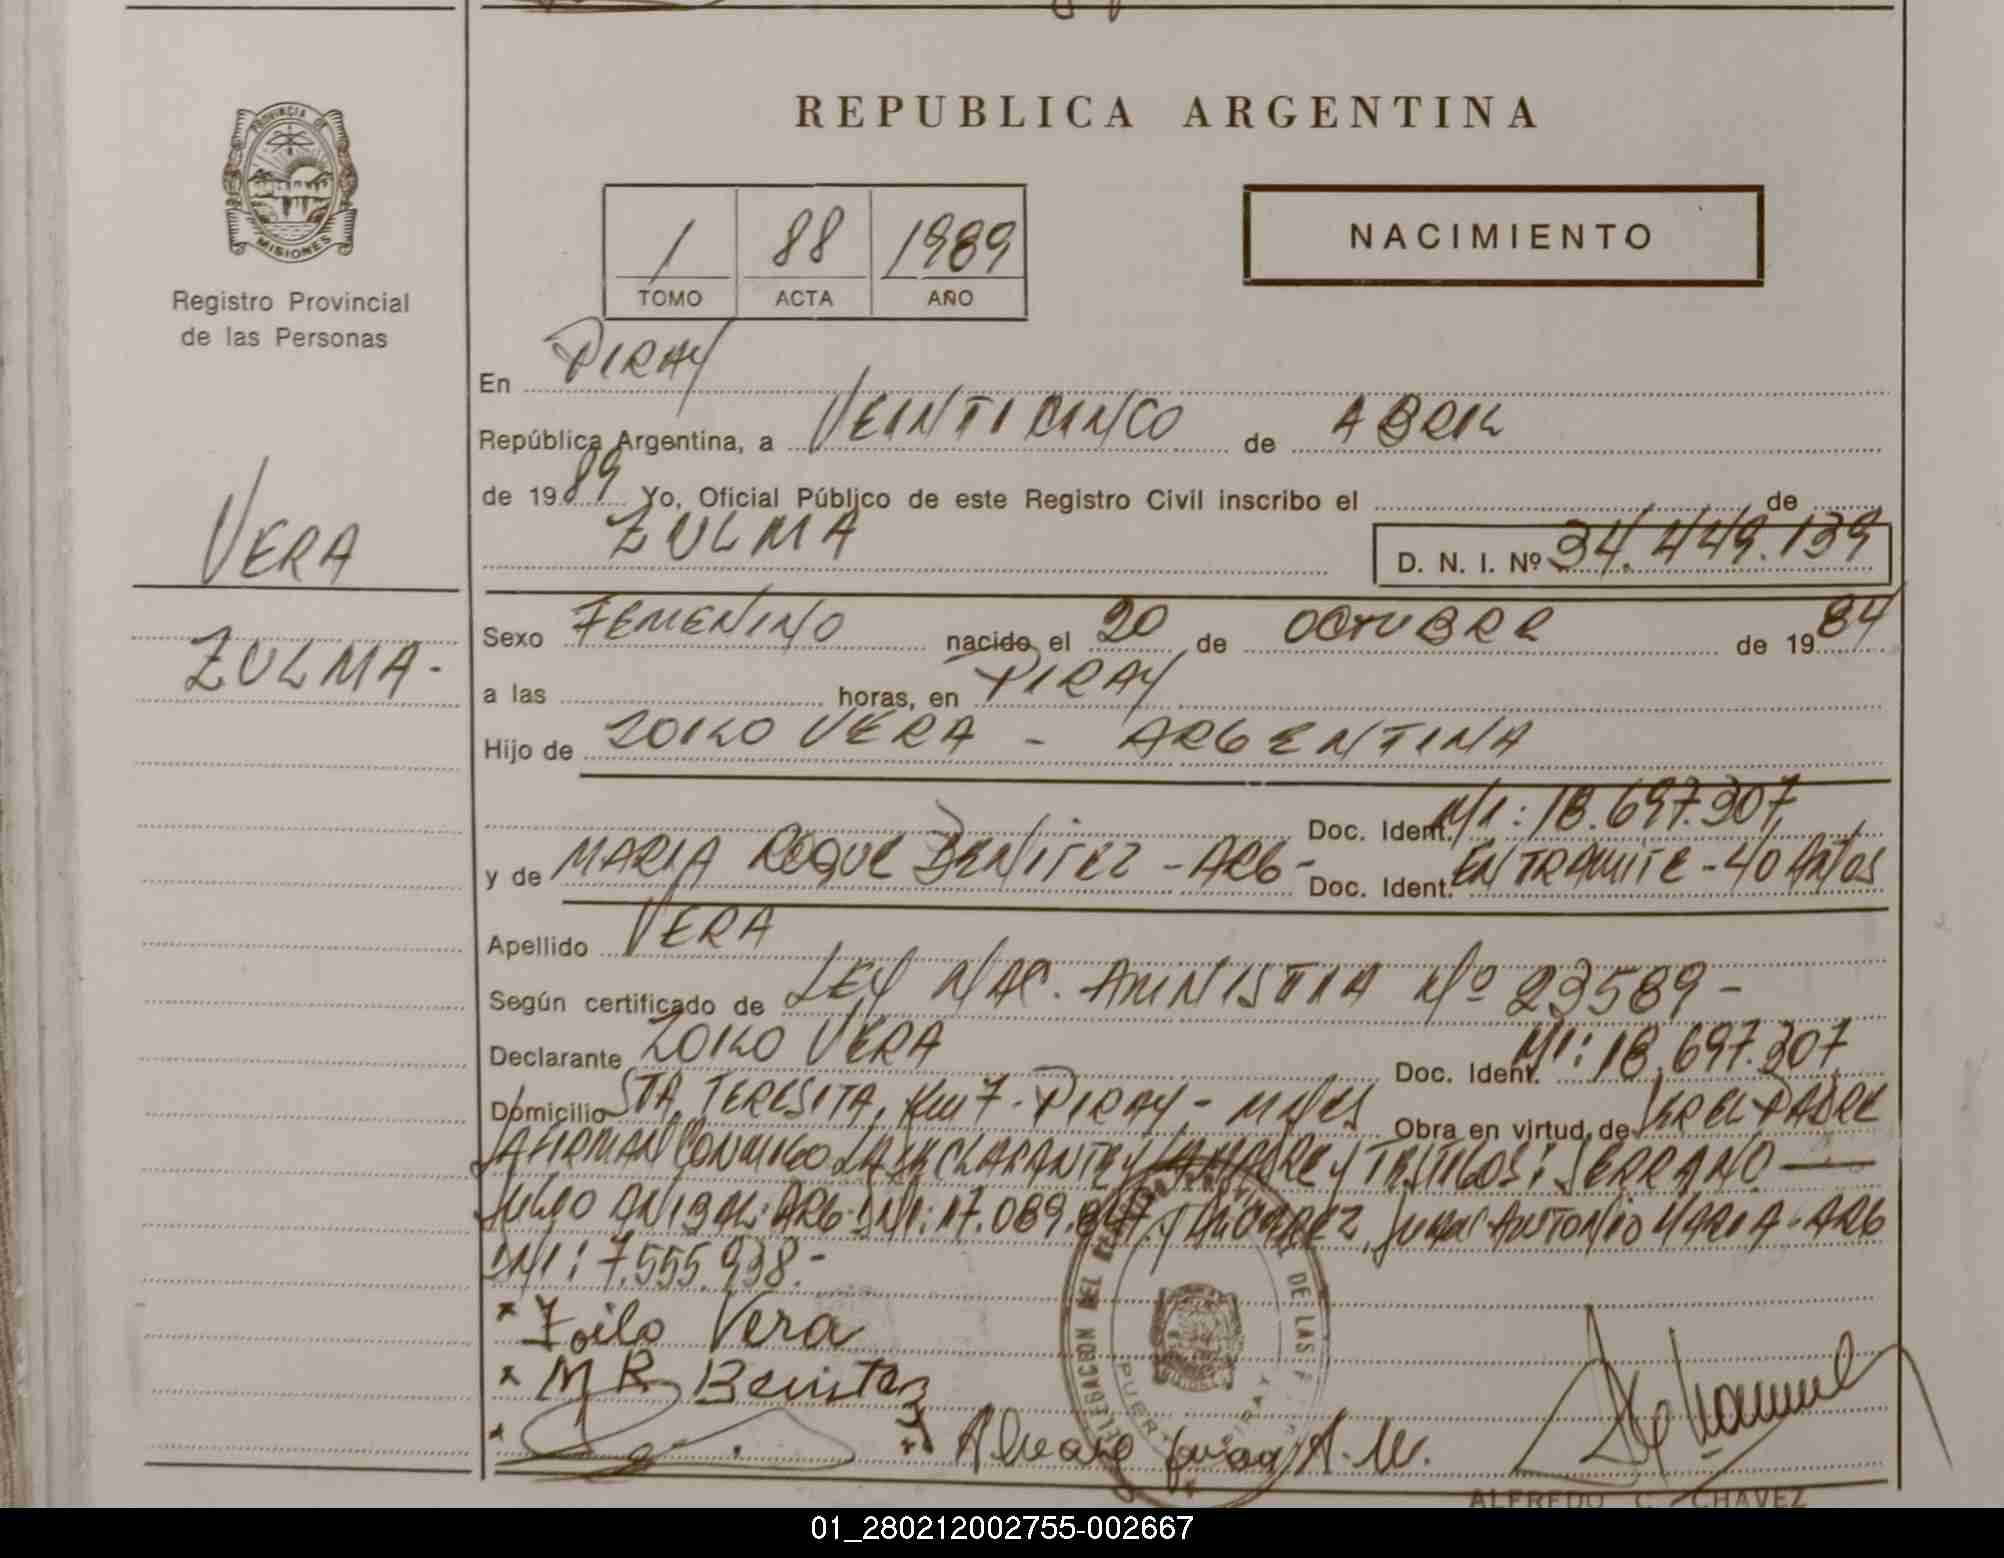 REPUBLICA ARGENTINA
PROVINCIA DE
MISIONES
Registro Provincial
de las Personas
1 88 1989
TOMO ACTA AÑO
NACIMIENTO
En PIRAY
República Argentina, a VEINTICINCO de ABRIL
de 1989 Yo, Oficial Público de este Registro Civil inscribo el de
ZULMA D. N. I. Nº 34.449.139
VERA
ZULMA-
Sexo FEMENINO nacido el 20 de OCTUBRE de 1984
a las horas, en PIRAY
Hijo de ZOILO VERA - ARGENTINA
Doc. Ident. M/I: 18.697.307
y de MARIA ROQUE BENITEZ - ARG - Doc. Ident. EN TRAMITE - 40 AÑOS
Apellido VERA
Según certificado de LEY NAC. AMNISTIA Nº 23589 -
Declarante ZOILO VERA Doc. Ident. MI: 18.697.307
Domicilio STA. TERESITA, Km 7 - PIRAY - MNES Obra en virtud de SER EL PADRE
FIRMAN CONMIGO LA DECLARANTE Y LA MADRE Y TESTIGOS: SERRANO
JULIO ANIBAL: ARG. DNI: 17.089. Y ALVAREZ, JUAN ANTONIO MARIA - ARG
DNI: 7.555.938.-
x Zoilo Vera
x M R Benitez
Alvarez Juan A. M.
DELEGACION DE LAS
PUERTO PIRAY
ALFREDO C. CHAVEZ
01_280212002755-002667